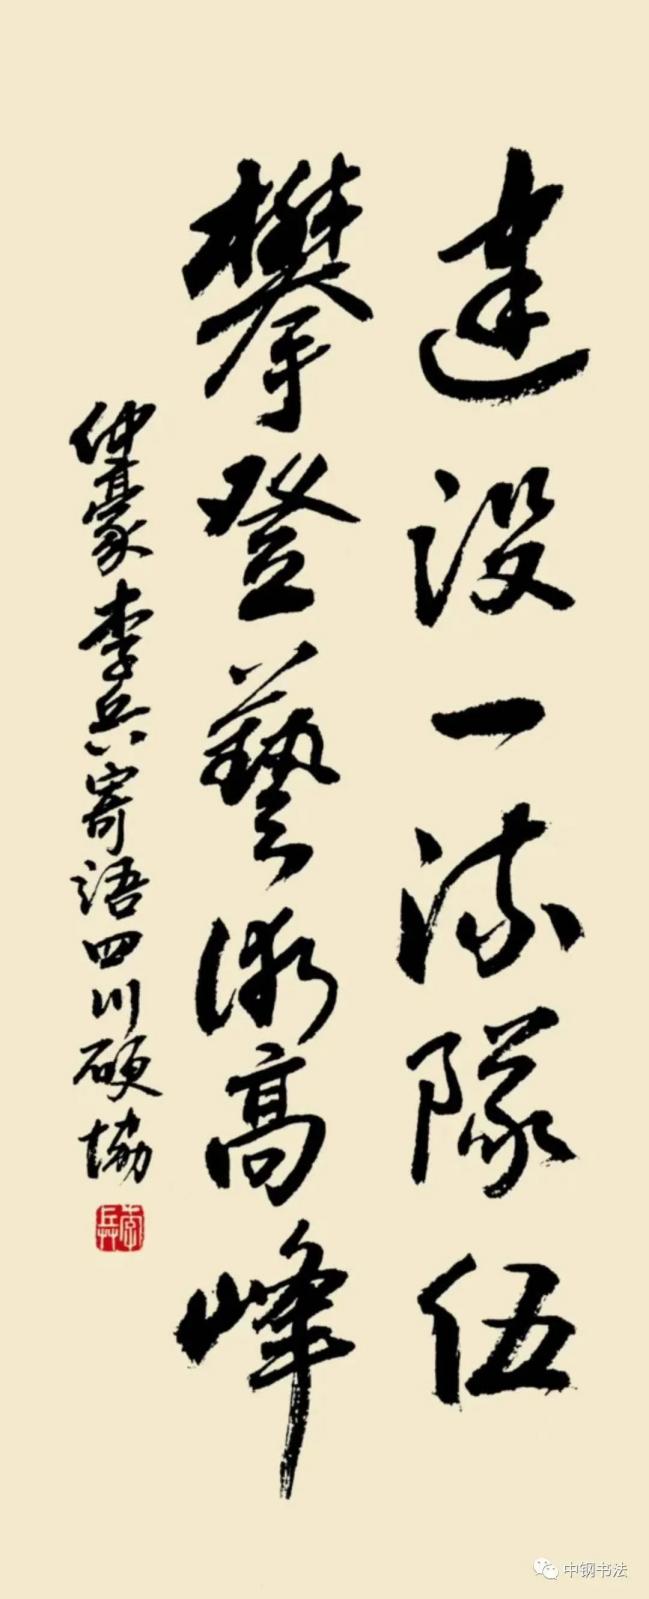 建设一流隊伍
攀登藝術高峰
仲豪李兵寄语四川硬协
李兵
中钢书法